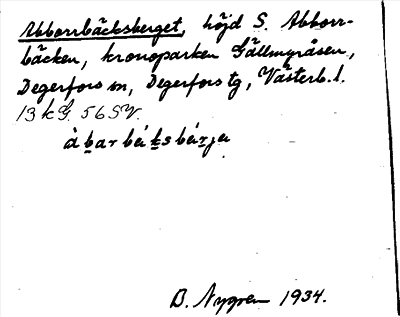 Abborrbäcksberget, höjd S. Abborr-
bäcken, kronoparken Gällmyråsen,
Degerfors sn, Degerfors tg, Västerb. l.
13 k G. 56 SV.
àb̲ar bèk̲s bèr̲ja
B. Nygren 1934.